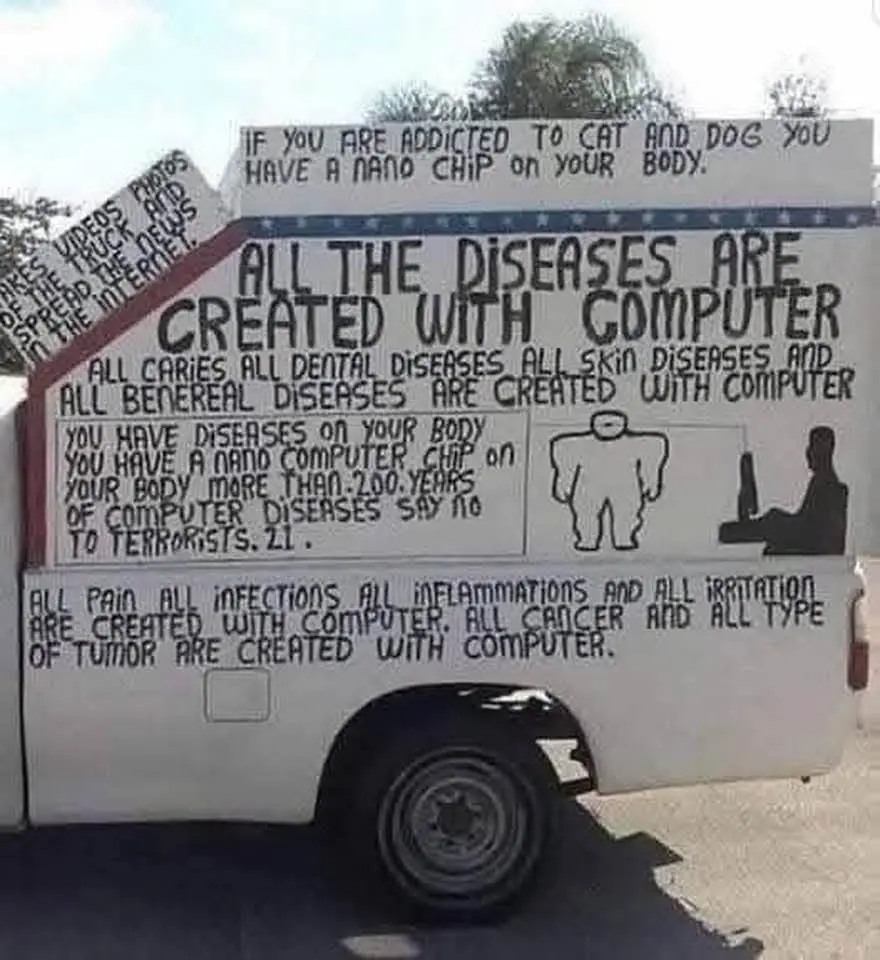 IF YOU ARE ADDICTED TO CAT AND DOG YOU
HAVE A NANO CHIP On YOUR BODY.
AKES VIDEOS PHOTOS
OF THE TRUCK AND
SPREAD THE NEWS
IN THE INTERNET.
ALL THE DiSEASES ARE
CREATED WiTH COMPUTER
ALL CARiES ALL DENTAL DiSEASES ALL SKin DiSEASES AND
ALL BENEREAL DiSEASES ARE CREATED WiTH COMPUTER
YOU HAVE DiSEASES On YOUR BODY
YOU HAVE A NANO COMPUTER CHiP On
YOUR BODY MORE THAN.200.YEARS
OF COMPUTER DiSEASES SAY NO
TO TERRORiSTS.21.
ALL PAin ALL inFECTiOnS ALL inFLAMMATiOnS AND ALL iRRiTATiOn
ARE CREATED WiTH COMPUTER. ALL CANCER AND ALL TYPE
OF TUMOR ARE CREATED WiTH COMPUTER.